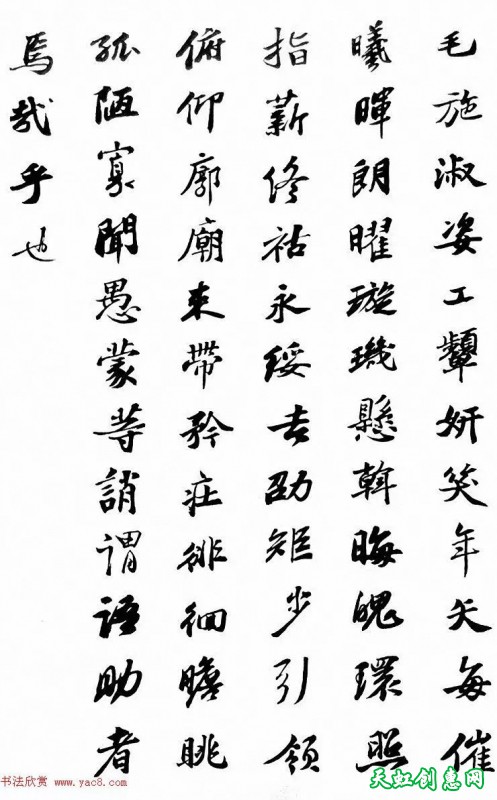 毛施淑姿工颦妍笑年矢每催
曦暉朗曜璇璣懸斡晦魄環照
指薪修祜永綏吉劭矩步引領
俯仰廊廟束帶矜莊徘徊瞻眺
孤陋寡聞愚蒙等誚謂語助者
焉哉乎也
书法欣赏 www.yac8.com
天虹创意网